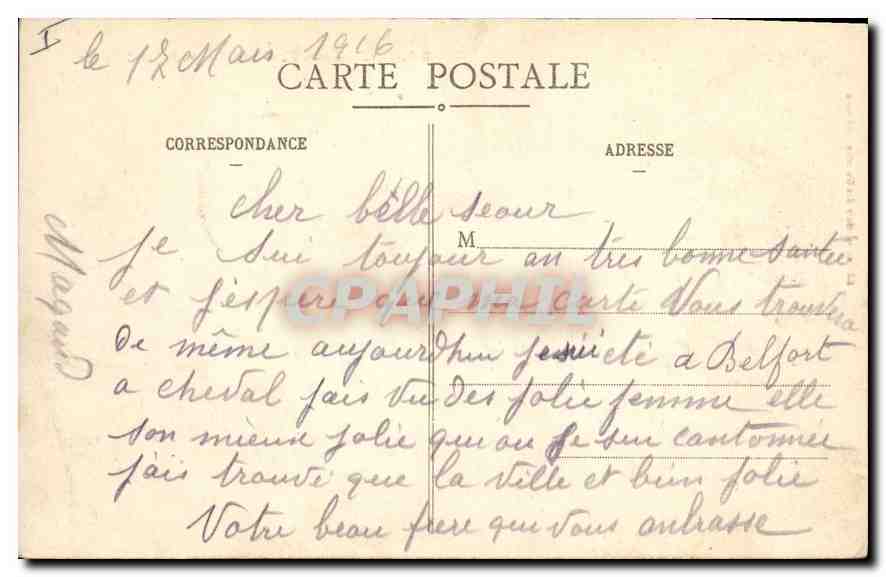 I
le 12 Mars 1916
CARTE POSTALE
CORRESPONDANCE
ADRESSE
cher bélle seour
M
Je sui toujour an trés bonne santée
et j'éspere que ma carte Vous trouvera
de même aujourdhui je sui eté a Belfort
a cheval jais vu des jolie femme elle
son mieux jolie qu'ou je sui cantonnée
jais trouvé que la ville et bien jolie
Votre beau frere qui vous anbrasse
Magaud
CPAPHIL